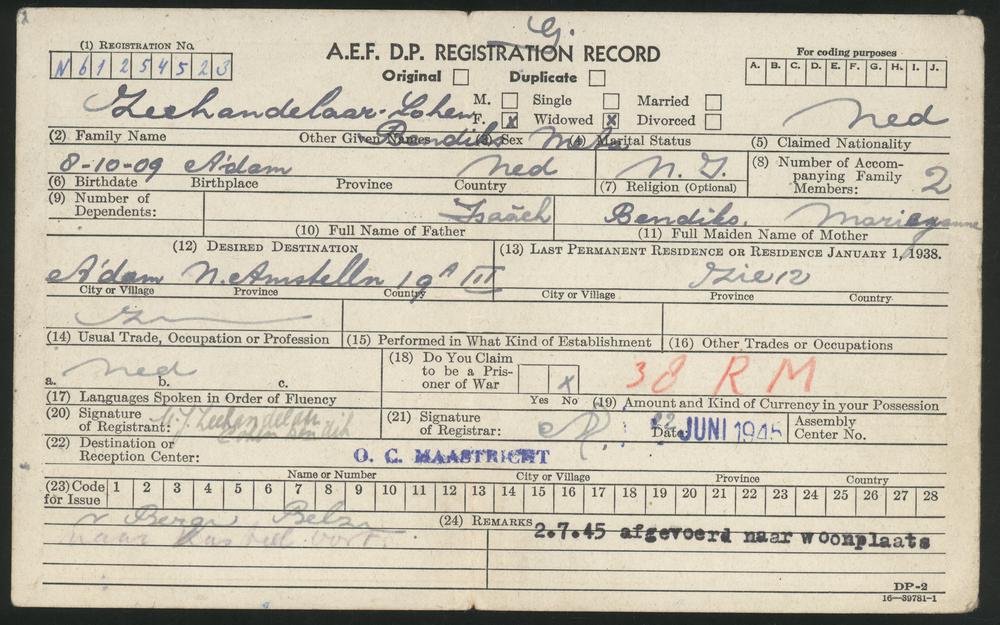 (1) REGISTRATION NO.
N 6 1 2 5 4 5 2 3
A.E.F. D.P. REGISTRATION RECORD
Original Duplicate
For coding purposes
A. B. C. D. E. F. G. H. I. J.
M. Single Married
Zeehandelaar-Cohen F. x Widowed x Divorced Ned
Bendiks Meta
(2) Family Name Other Given Names (3) Sex (4) Marital Status (5) Claimed Nationality
8-10-09 A'dam Ned N.I. 2
(6) Birthdate Birthplace Province Country (7) Religion (Optional) (8) Number of Accompanying Family Members:
(9) Number of Dependents:
Isaäch Bendiks.
(10) Full Name of Father (11) Full Maiden Name of Mother
(12) DESIRED DESTINATION (13) LAST PERMANENT RESIDENCE OR RESIDENCE JANUARY 1, 1938.
A'dam N. Amstelln 19A III Zie 12
City or Village Province Country City or Village Province Country
(14) Usual Trade, Occupation or Profession (15) Performed in What Kind of Establishment (16) Other Trades or Occupations
Ned
a. b. c.
(17) Languages Spoken in Order of Fluency
(18) Do You Claim to be a Prisoner of War x
Yes No
38 RM
(19) Amount and Kind of Currency in your Possession
(20) Signature of Registrant: Zeehandelaar
(21) Signature of Registrar: Date: 22 JUNI 1945 Assembly Center No.
(22) Destination or Reception Center: O. C. MAASTRICHT
Name or Number City or Village Province Country
(23) Code for Issue 1 2 3 4 5 6 7 8 9 10 11 12 13 14 15 16 17 18 19 20 21 22 23 24 25 26 27 28
v Bergen Belzn
(24) REMARKS 2.7.45 afgevoerd naar woonplaats
naar
DP-2
16—39781-1